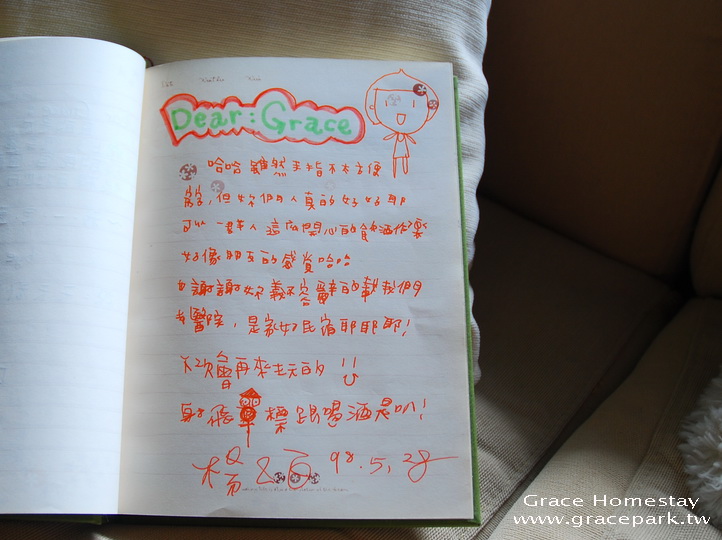 Dear: Grace
哈哈 雖然手指不太方便
但你們人真的好好耶
可以一群人這麼開心的飲酒作樂
好像朋友的感覺哈哈
謝謝妳義不容辭的載我們
醫院，是家好民宿耶耶耶！
下次會再來玩的 !!
射飛鏢跟喝酒 !
98.5.28
Grace Homestay
www.gracepark.tw